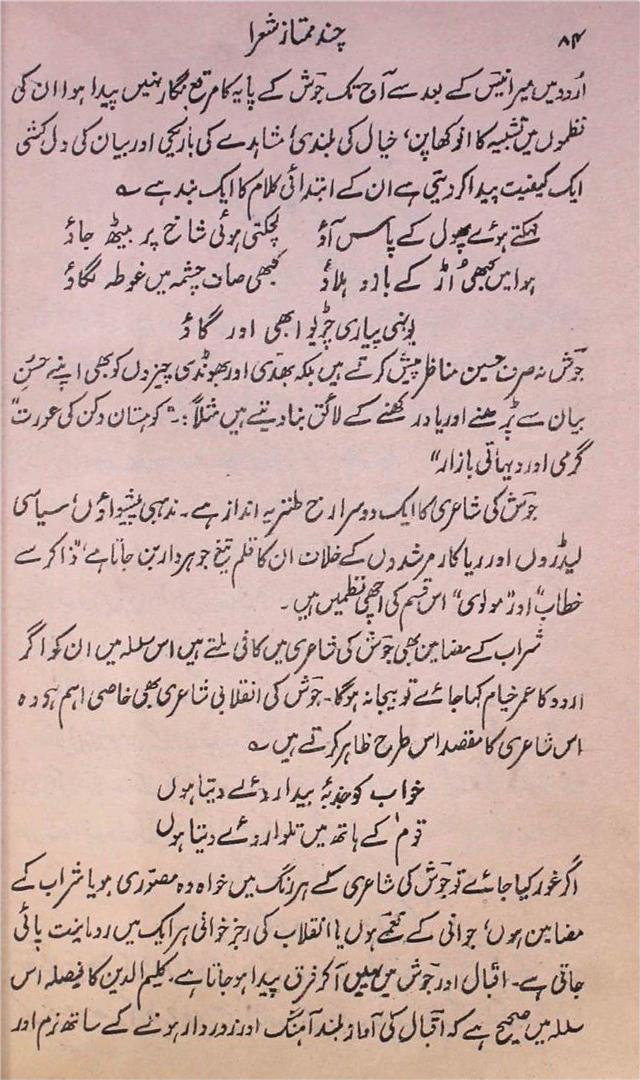 ۸۴ چند ممتاز شعرا
اُردو میں میر انیسؔ کے بعد سے آج تک جوشؔ کے پایہ کا مرقع نگار نہیں پیدا ہوا ان کی
نظموں میں تشبیہ کا انوکھا پن، خیال کی بلندی، مشاہدے کی باریکی اور بیان کی دل کشی
ایک کیفیت پیدا کر دیتی ہے ان کے ابتدائی کلام کا ایک بند ہے ؎
مہکتے ہوئے پھول کے پاس آؤ لچکتی ہوئی شاخ پر بیٹھ جاؤ
ہوا میں کبھی اُڑ کے بازو ہلاؤ کبھی صاف چشمہ میں غوطہ لگاؤ
یونہی پیاری چڑیو ابھی اور گاؤ
جوشؔ نہ صرف حسین مناظر پیش کرتے ہیں بلکہ بھدی اور بھونڈی چیزوں کو بھی اپنے حسنِ
بیان سے پڑھنے اور یاد رکھنے کے لائق بنا دیتے ہیں مثلاً:۔ "کوہستان دکن کی عورت"
گرمی اور دیہاتی بازار"
جوشؔ کی شاعری کا ایک دوسرا رخ طنزیہ انداز ہے۔ مذہبی پیشواؤں، سیاسی
لیڈروں اور ریاکار مرشدوں کے خلاف ان کا قلم تیغِ جوہردار بن جاتا ہے، "ذاکر سے
خطاب" اور "مولوی" اس قسم کی اچھی نظمیں ہیں۔
شراب کے مضامین بھی جوشؔ کی شاعری میں کافی ملتے ہیں اس سلسلہ میں ان کو اگر
اردو کا عمر خیام کہا جائے تو بیجا نہ ہوگا۔ جوشؔ کی انقلابی شاعری بھی خاصی اہم ہے وہ
اس شاعری کا مقصد اس طرح ظاہر کرتے ہیں ؎
خواب کو جذبۂ بیدار دئے دیتا ہوں
قوم کے ہاتھ میں تلوار دئے دیتا ہوں
اگر غور کیا جائے تو جوشؔ کی شاعری کے ہر رنگ میں خواہ وہ مصوّری ہو یا شراب کے
مضامین ہوں، جوانی کے نغمے ہوں یا انقلاب کی رجز خوانی ہر ایک میں رومانیت پائی
جاتی ہے۔ اقبال اور جوشؔ میں یہیں آ کر فرق پیدا ہو جاتا ہے۔ کلیم الدین کا فیصلہ اس
سلسلہ میں صحیح ہے کہ اقبال کی آواز بلند آہنگ اور زور دار ہونے کے ساتھ نرم اور